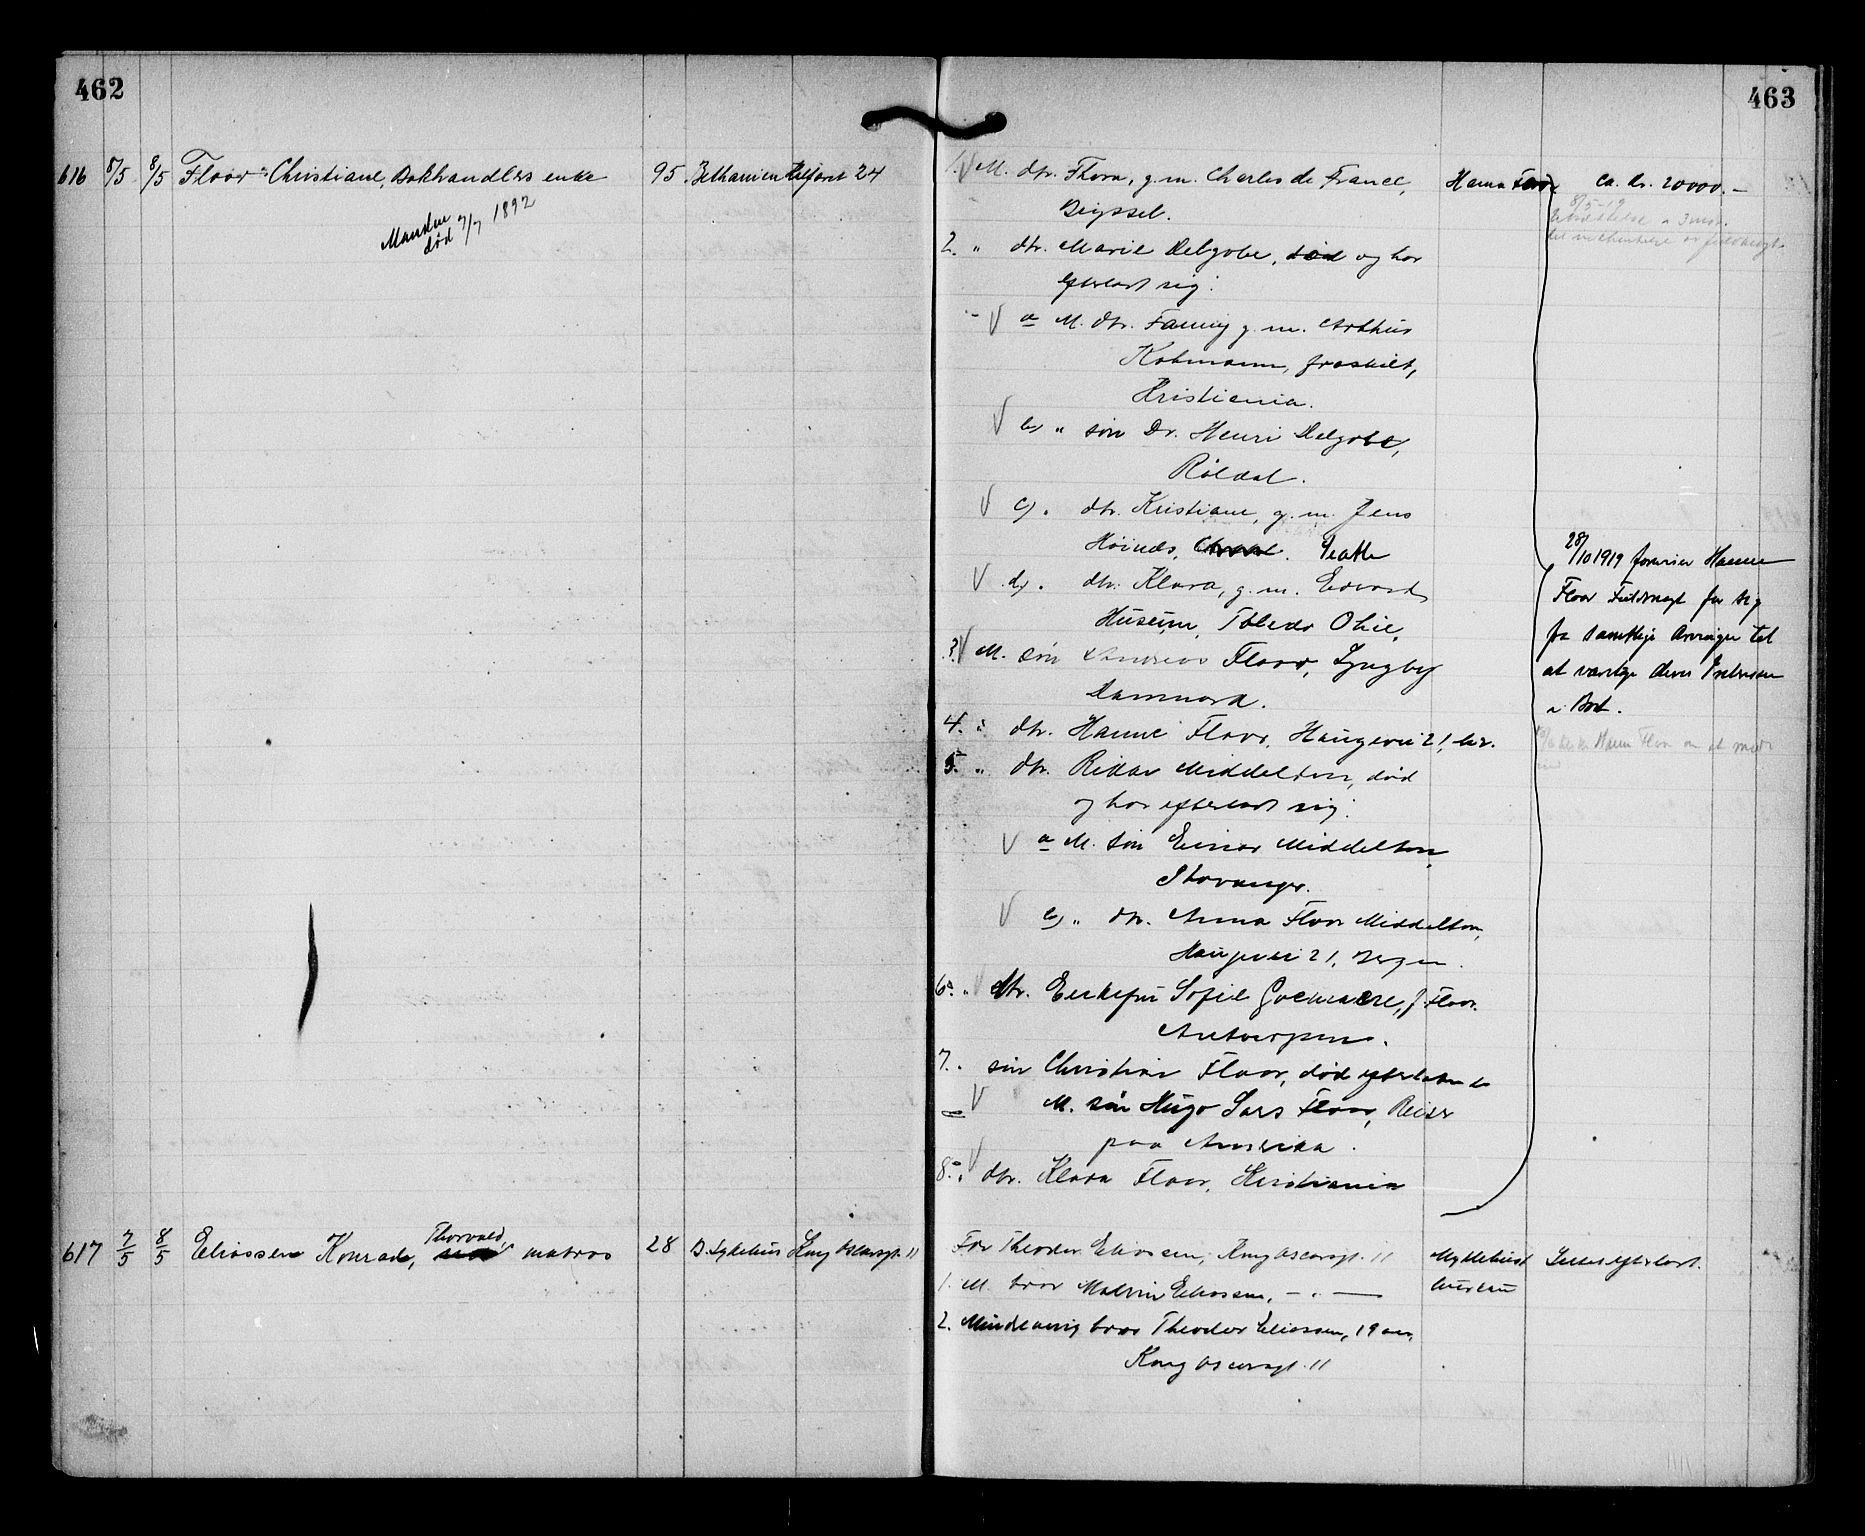 462
616 8/5 8/5 Floor Christiane, Bokhandlers enke 95 Bethanien Kalfaret 24
Manden
død 7/7 1892
617 7/5 8/5 Eliassen Konrad, Thorvald, matros 28 B. Sykehus Kong Oscarsgt. 11
463
1. M. dtr. Thora, g.m. Charles de France, Hanna Floor ca. kr. 20000.-
Bryssel. 8/5-19
2. " dtr. Marie Delgobe, død og har
efterlatt sig:
a M. dtr. Fanny g.m. Arthur
Kobmann, fraskilt,
Kristiania.
b) " søn Dr. Henri Delgobe,
Røldal.
c) " dtr. Kristiane, g.m. Jens
Høinæs, Seattle
d) " dtr. Klara, g.m. Edvard
Huseum, Toledo Ohio.
3. M. søn Andreas Floor, Lyngby
Danmark.
4. " dtr. Hanne Floor, Haugevei 21, her.
5. " dtr. Rikka Middelton, død
og har efterlatt sig:
a M. søn Einar Middelton
Stavanger.
b) " dtr. Anna Floor Middelton,
Haugevei 21, Bergen.
6. " dtr. Enkefru Sofie f. Floor.
Antwerpen.
7. " søn Christian Floor, død efterlatende
M. søn Hugo Lars Floor, Reiser
paa Amerika.
8. " dtr. Klara Floor, Kristiania
28/10 1919 foreviser Hanne
Floor Fuldmagt for sig
fra samtlige Arvinger til
at varetage deres Interesser
i Boet.
Far Theodor Eliassen, Kong Oscarsgt. 11 Myklebust Intet efterlatt.
1. M. bror Malvin Eliassen, - " - bureau
2. Mindreaarig bror Theodor Eliassen, 19 aar,
Kong Oscarsgt. 11